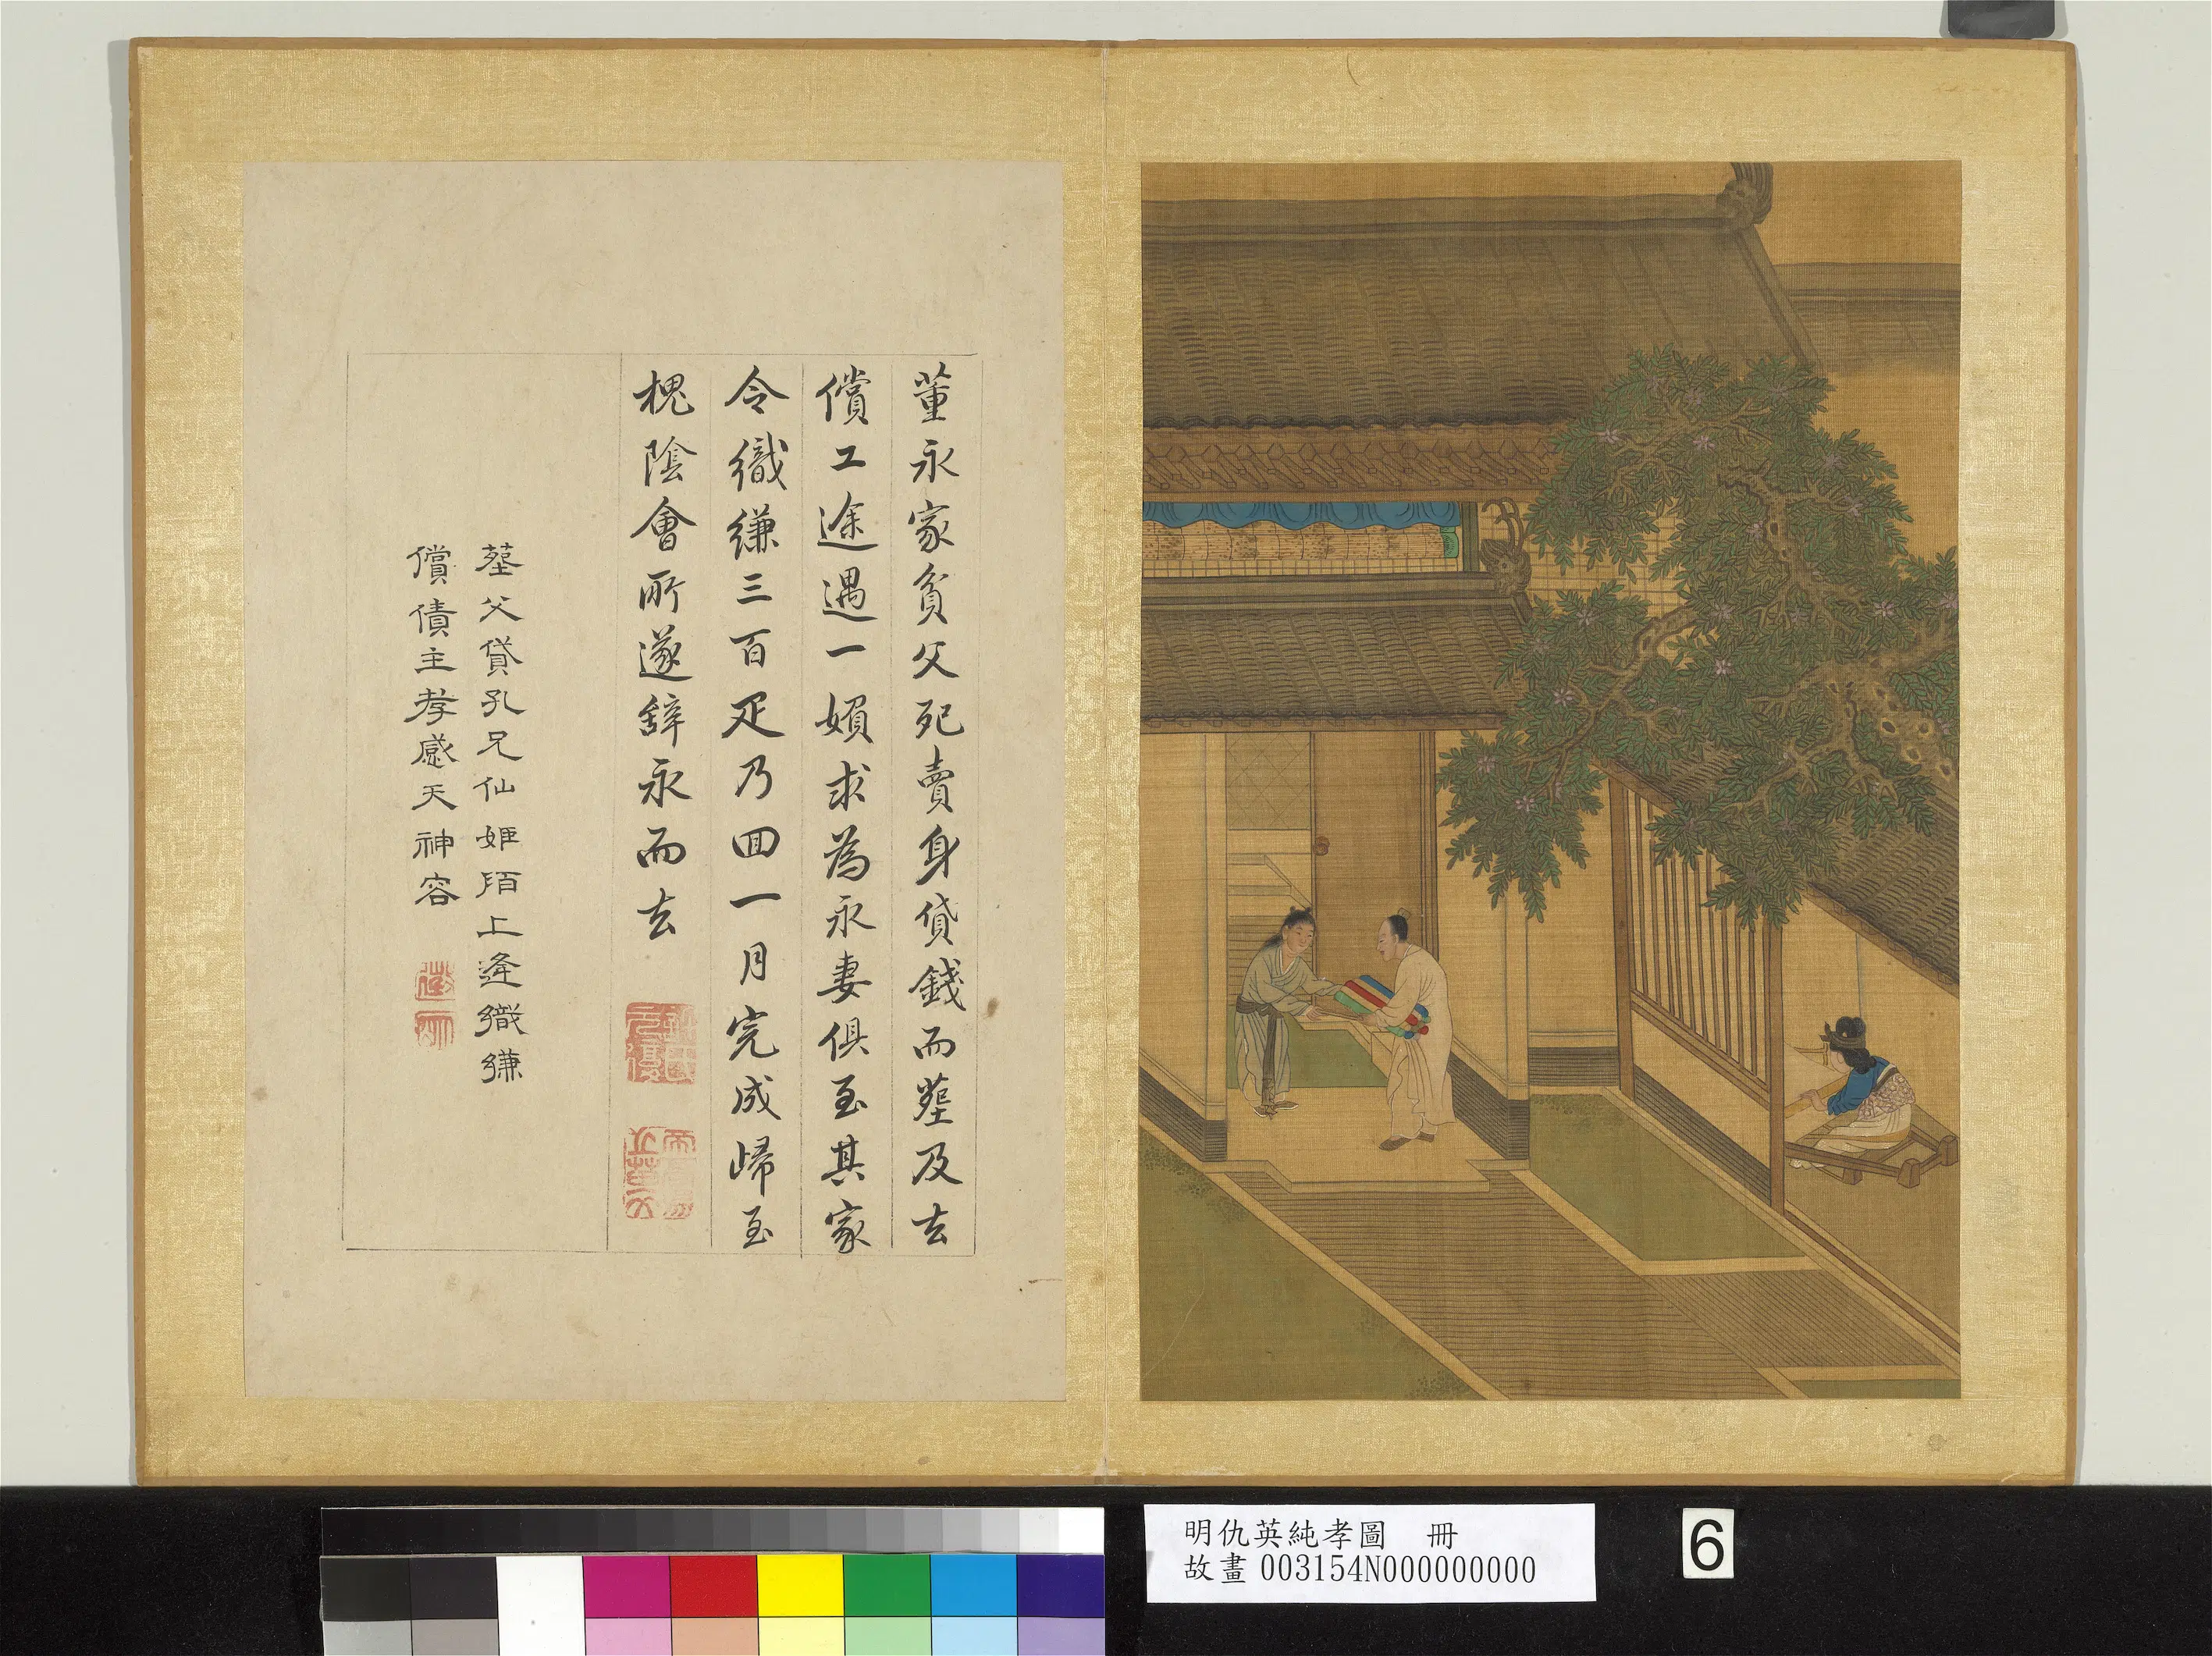 董永家貧父死賣身貸錢而塟及去
償工途遇一嬪求為永妻俱至其家
令織縑三百疋乃回一月完成歸至
槐陰會所遂辭永而去
塟父貸孔兄仙姬陌上逢織縑
償債主孝感天神容
明仇英純孝圖 冊
故畫 003154N000000000
6